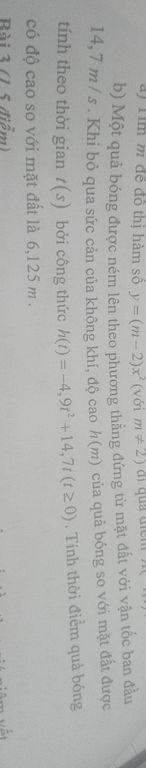 a) Tìm m để đồ thị hàm số y = (m − 2)x² (với m ≠ 2) đi qua điểm
b) Một quả bóng được ném lên theo phương thẳng đứng từ mặt đất với vận tốc ban đầu
14,7 m / s. Khi bỏ qua sức cản của không khí, độ cao h(m) của quả bóng so với mặt đất được
tính theo thời gian t(s) bởi công thức h(t) = −4,9t² + 14,7t (t ≥ 0). Tính thời điểm quả bóng
có độ cao so với mặt đất là 6,125 m.
Bài 3 (1,5 điểm)